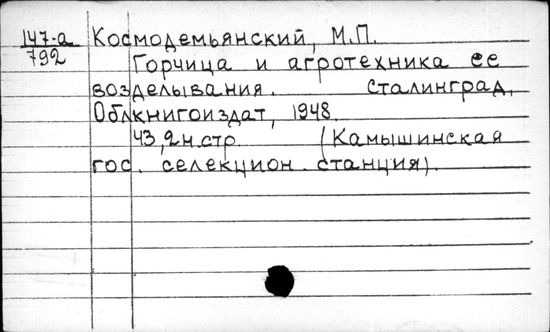 147-а
792
Космодемьянский, М.П.
Горчица и агротехника ее
возделывания. Сталинград,
Облкнигоиздат, 1948.
43,2н.стр. (Камышинская
гос. селекцион. станция).